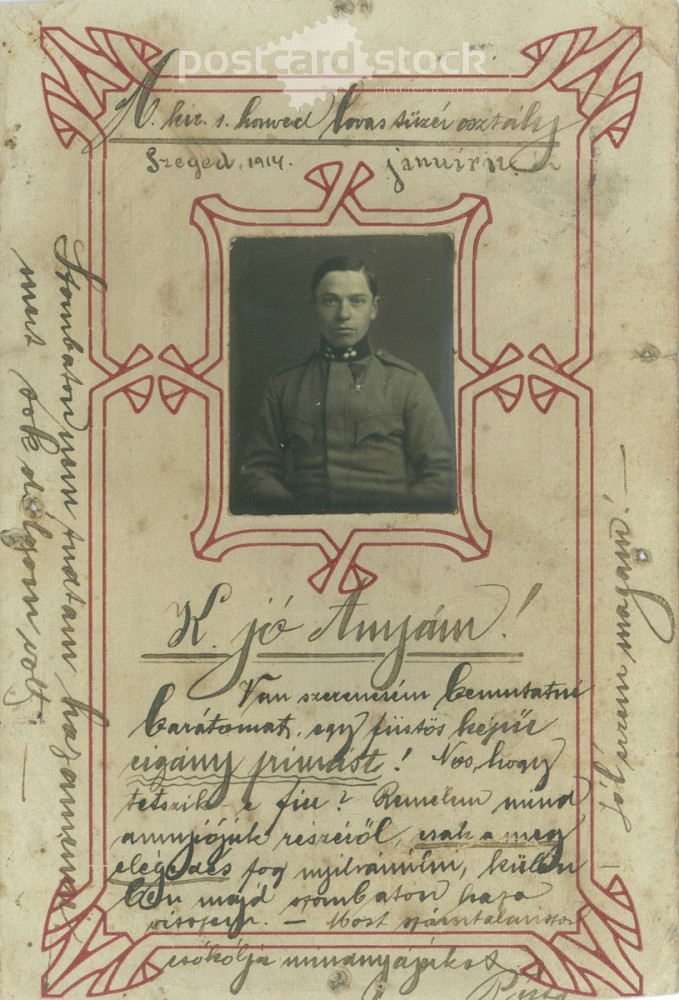 postcard stock
M. kir. 1. honvéd lovas tüzér osztály
Szeged, 1914. január
K. jó Anyám!
Van szerencsém bemutatni
barátomat, egy füstös képűe
cigány prímást! Nos, hogy
tetszik-e fiu? Remélem mind
annyiójuk részéről, csak a meg
elégedés fog nyilvánulni, külön
ben majd szombaton haza
viszem. — Most számtalanszor
csókolja mindnyájukat
Pista
Szombaton nem tudtam haza menni
mert sok dolgom volt. —
Jól érzem magam! —